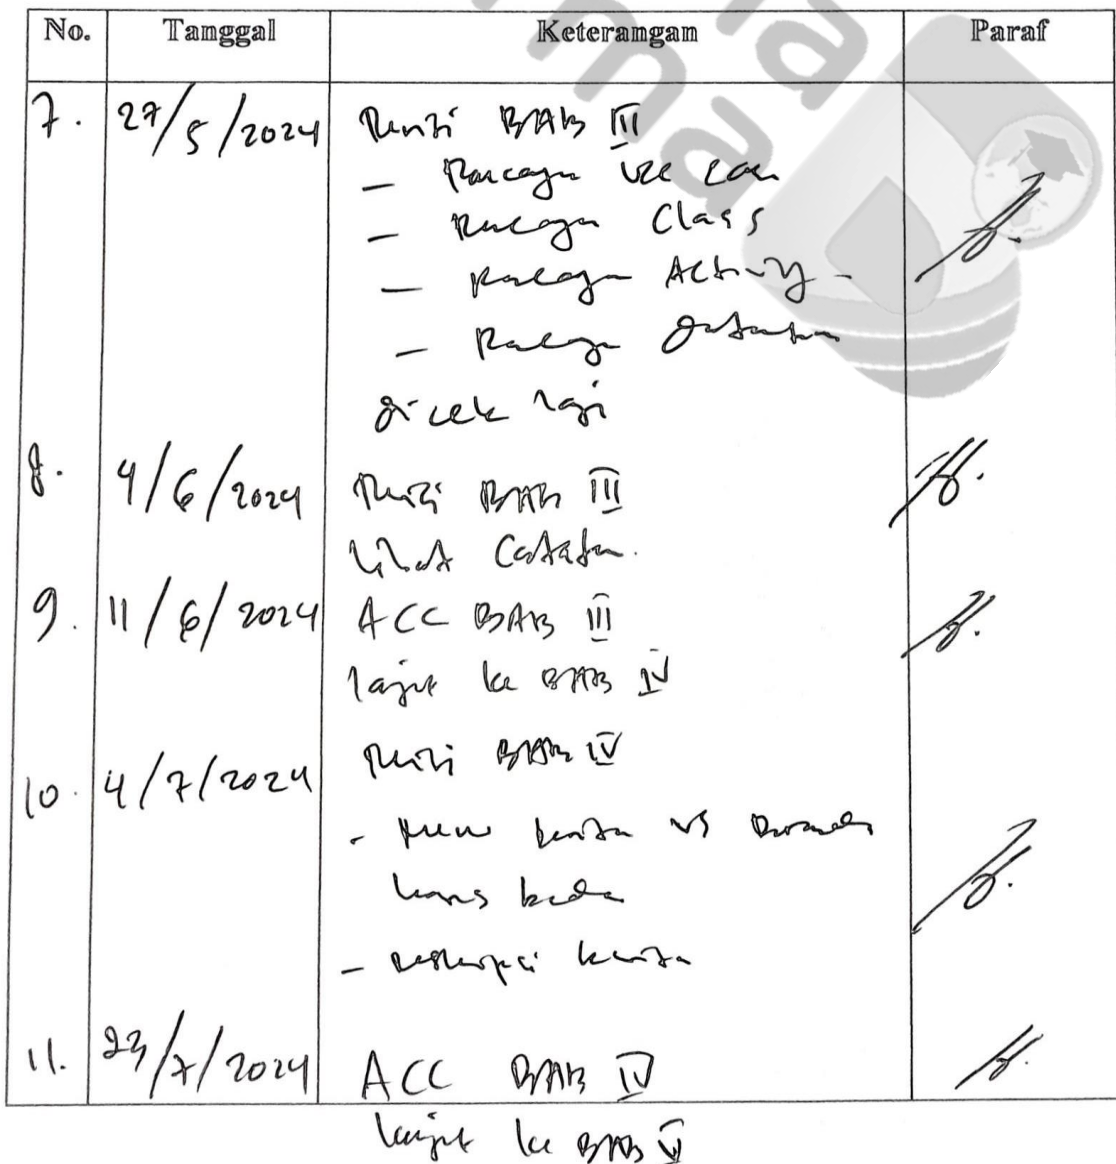 No. Tanggal Keterangan Paraf
7. 27/5/2024 Revisi BAB III
- Rancangan Use Case
- Rancangan Class
- Rancangan Activity -
- Rancangan database
dicek lagi
8. 4/6/2024 Revisi BAB III
lihat Catatan.
9. 11/6/2024 ACC BAB III
lanjut ke BAB IV
10. 4/7/2024 Revisi BAB IV
- menu berita vs
harus beda
- deskripsi berita
11. 23/7/2024 ACC BAB IV
lanjut ke BAB V